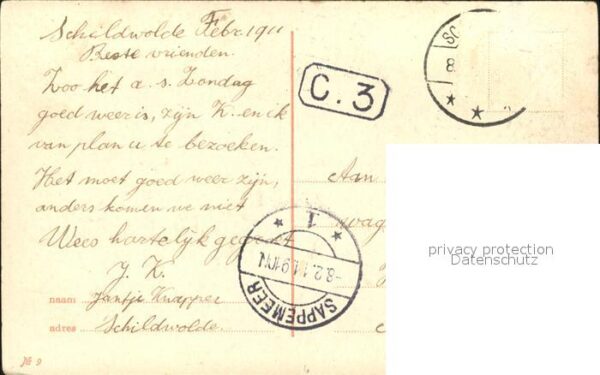 Schildwolde Febr. 1911
Beste vrienden.
Zoo het a. s. Zondag
goed weer is, zijn K. en ik
van plan u te bezoeken.
Het moet goed weer zijn,
anders komen we niet
Wees hartelijk gegroet
J. K.
naam Jantje Knapper
adres Schildwolde
№ 9
C. 3
SC
8
1
-8.2.11.9-10N
SAPPEMEER
Aan
wag
privacy protection
Datenschutz